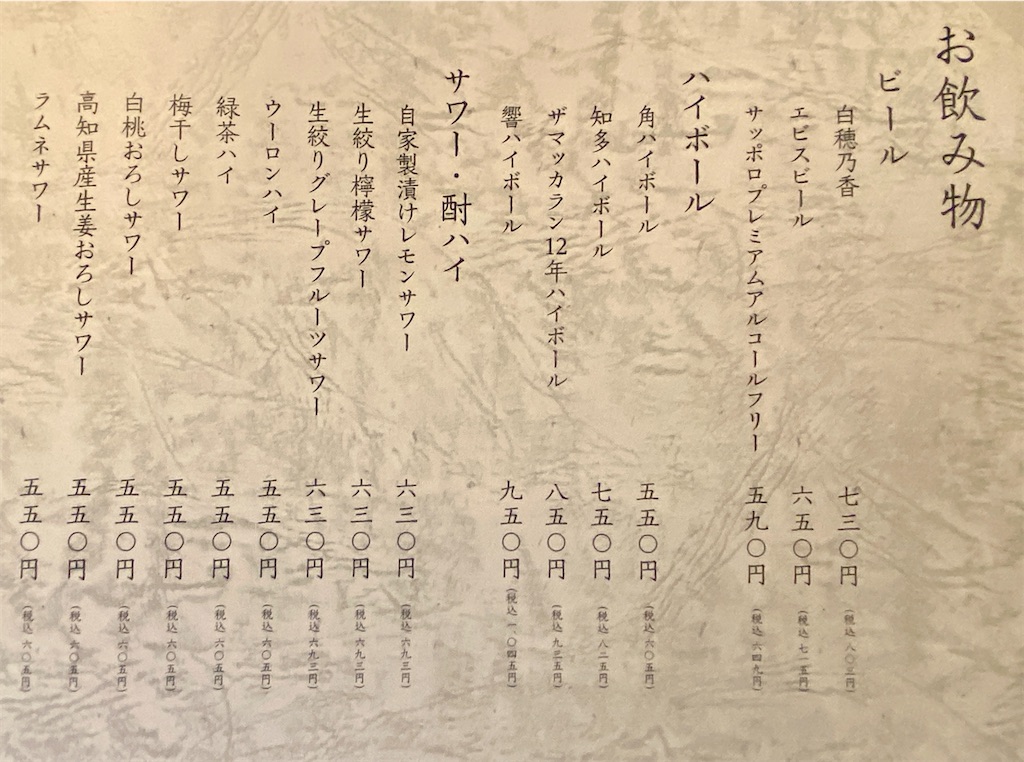 お飲み物
ビール
白穂乃香 七三〇円 (税込 八〇三円)
エビスビール 六五〇円 (税込 七一五円)
サッポロプレミアムアルコールフリー 五九〇円 (税込 六四九円)
ハイボール
角ハイボール 五五〇円 (税込 六〇五円)
知多ハイボール 七五〇円 (税込 八二五円)
ザマッカラン12年ハイボール 八五〇円 (税込 九三五円)
響ハイボール 九五〇円 (税込 一、〇四五円)
サワー・酎ハイ
自家製漬けレモンサワー 六三〇円 (税込 六九三円)
生絞り檸檬サワー 六三〇円 (税込 六九三円)
生絞りグレープフルーツサワー 六三〇円 (税込 六九三円)
ウーロンハイ 五五〇円 (税込 六〇五円)
緑茶ハイ 五五〇円 (税込 六〇五円)
梅干しサワー 五五〇円 (税込 六〇五円)
白桃おろしサワー 五五〇円 (税込 六〇五円)
高知県産生姜おろしサワー 五五〇円 (税込 六〇五円)
ラムネサワー 五五〇円 (税込 六〇五円)